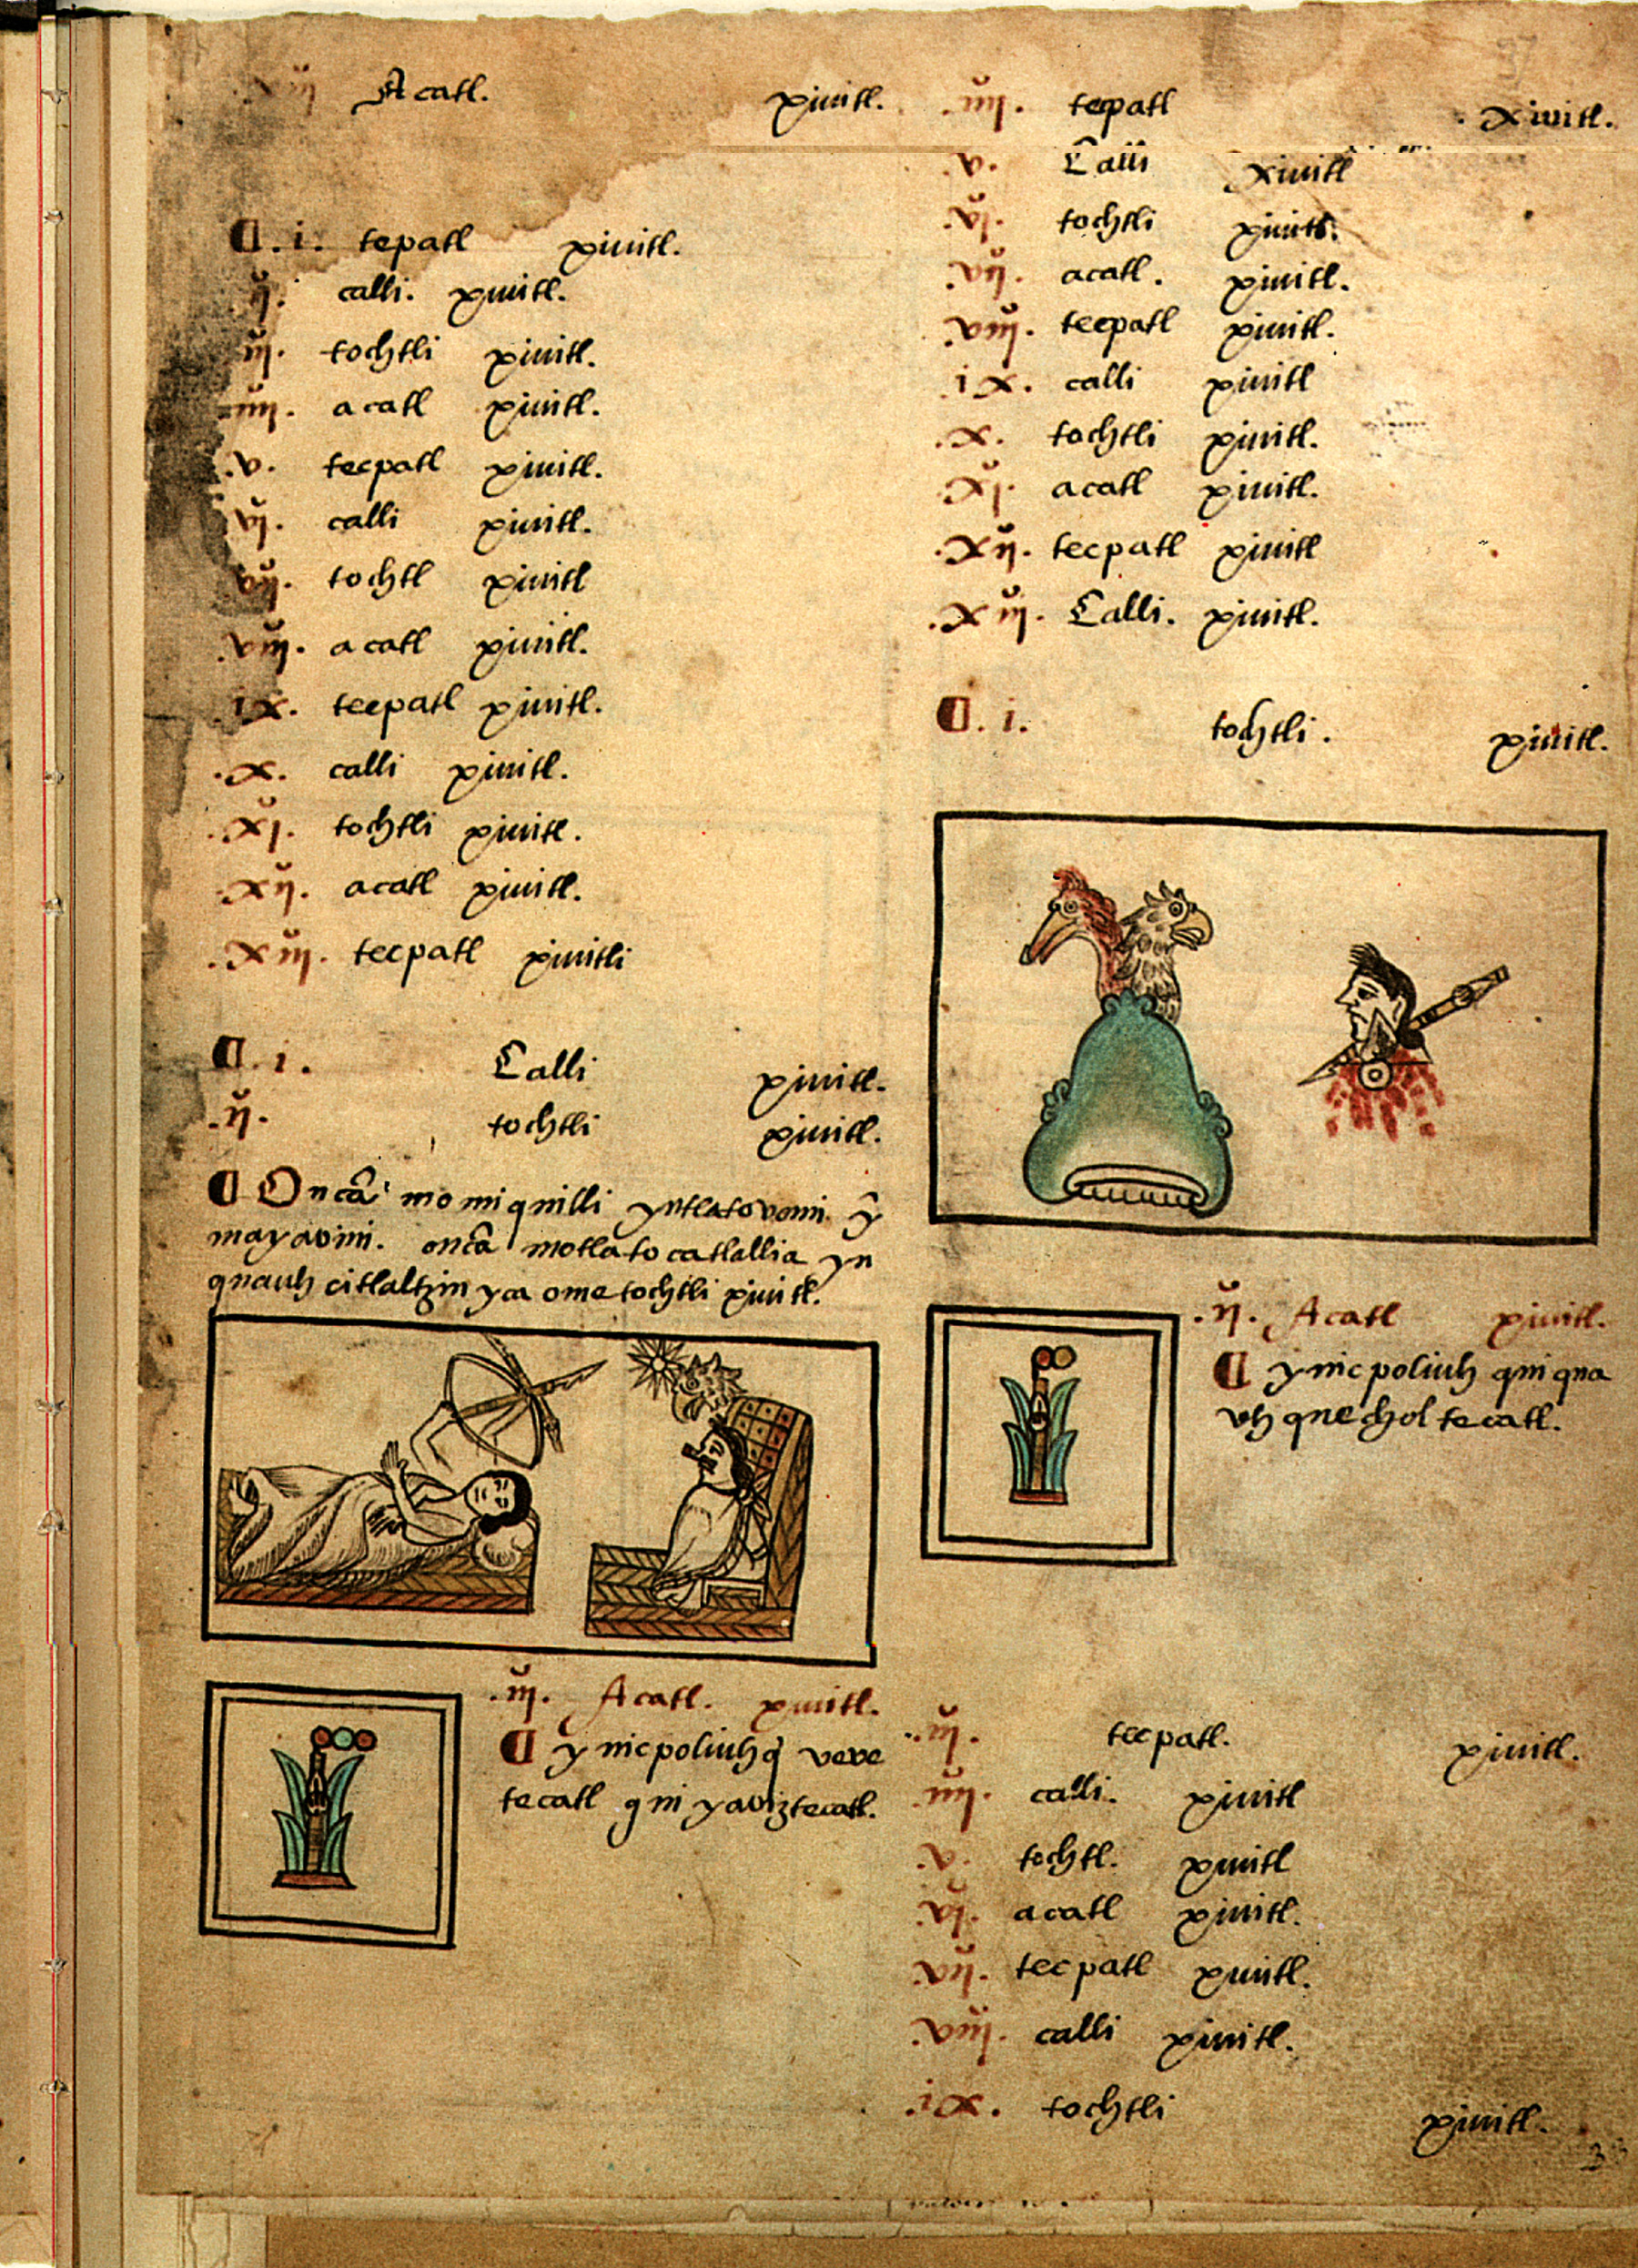 xiij Acatl. xiuitl.
¶. i. tepatl xiuitl.
ij. calli. xiuitl.
iij. tochtli xiuitl.
iiij. acatl xiuitl.
.v. tecpatl xiuitl.
vj. calli xiuitl.
vij. tochtl xiuitl
.viij. acatl xiuitl.
.ix. tecpatl xiuitl.
.x. calli xiuitl.
.xj. tochtli xiuitl.
.xij. acatl xiuitl.
.xiij. tecpatl xiuitli
¶. i. Calli xiuitl.
.ij. tochtli xiuitl.
¶ Oncã momiquilli yntlatovomi ỹ
mayaomi. oncã motlatocatlallia yn
quauh citlaltzin yca ome tochtli xiuitl.
.iij. Acatl. xiuitl.
¶ ynicpoliuhq̃ veve
tecatl qni yaviztecatl.
.iiij. tecpatl .xiuitl.
.v. Calli xiuitl
.vj. tochtli xiuitl.
.vij. acatl. xiuitl.
.viij. tecpatl xiuitl.
.ix. calli xiuitl
.x. tochtli xiuitl.
.xj. acatl xiuitl.
.xij. tecpatl xiuitl
.xiij. Calli. xiuitl.
¶. i. tochtli. xiuitl.
.ij. Acatl xiuitl.
¶ ynicpoliuh qni qua
uh quecholtecatl.
.iij. tecpatl. xiuitl.
.iiij. calli. xiuitl
.v. tochtl. xiuitl
.vj. acatl xiuitl.
.vij. tecpatl xiuitl.
.viij. calli xiuitl.
.ix. tochtli xiuitl.